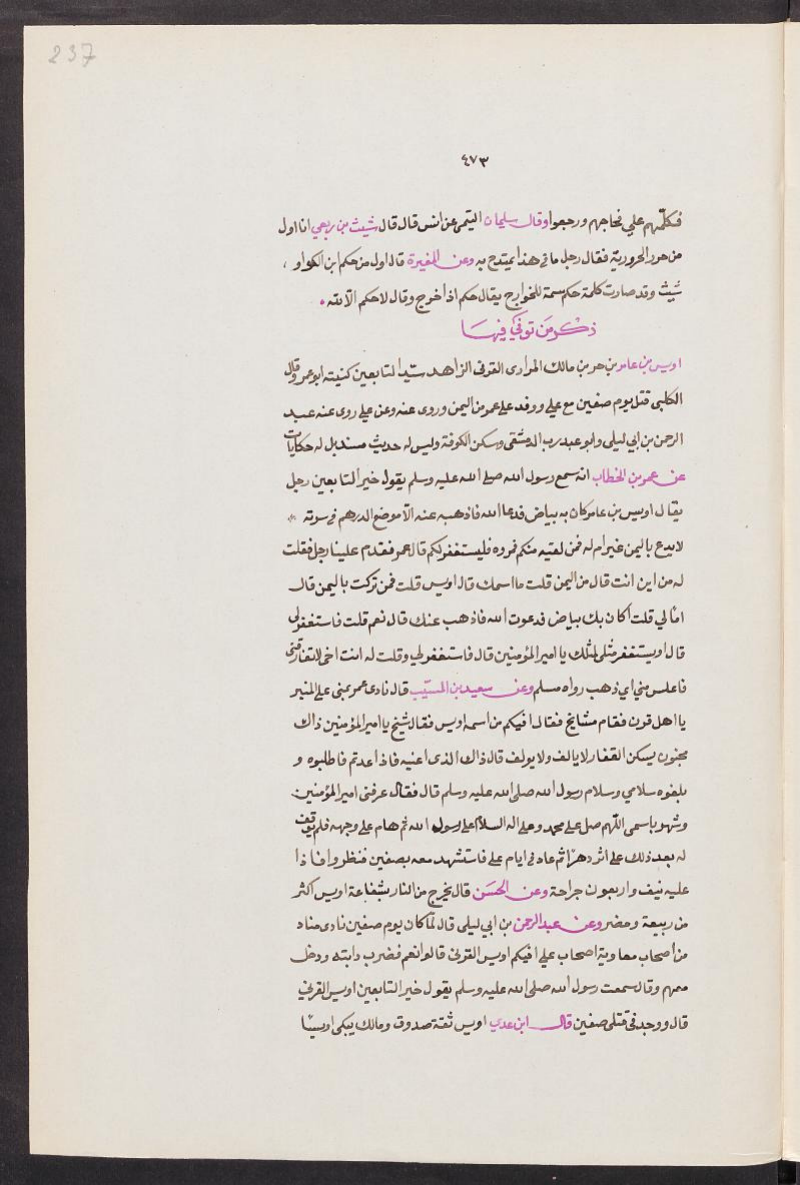 237
٤٧٣
فكلمهم علي فحاجهم ورجعوا وقال سليمان التيمى عن انس قال قال شبث بن ربعي انا اول
من حرر الحرورية فقال رجل ما في هذا يمتدح به وعن المغيرة قال اول من حكم ابن الكواو ،
شبث وقد صارت كلمة حكم سمة للخوارج يقال حكم اذا خرج وقال لاحكم الا لله
ذكر من توفي فيها
اويس بن عامر بن حر بن مالك المرادى القرنى الزاهد سيد التابعين كنيته ابوعمر وقال
الكلبى قتل يوم صفين مع علي ووفد على عمر من اليمن وروى عنه وعن علي روى عنه عبد
الرحمن بن ابي ليلى وابو عبد رب الدمشقى وسكن الكوفة وليس له حديث مسند بل له حكايات
عن عمر بن الخطاب انه سمع رسول الله صلى الله عليه وسلم يقول خير التابعين رجل
يقال اويس بن عامر كان به بياض فدعا الله فاذهبه عنه الا موضع الدرهم في سرته
لايدع باليمن غير ام له فمن لقيه منكم فمروه فليستغفر لكم قال عمر فقدم علينا رجل فقلت
له من اين انت قال من اليمن قلت ما اسمك قال اويس قلت فمن تركت باليمن قال
اما لي قلت اكان بك بياض فدعوت الله فاذهب عنك قال نعم قلت فاستغفر لى
قال اويستغفر مثلى لمثلك يا امير المؤمنين قال فاستغفر لي وقلت له انت اخى لاتفارقنى
فاملس مني اي ذهب رواه مسلم وعن سعيد بن المسيب قال نادى عمر بمنى على المنبر
يا اهل قرن فقام مشايخ فقال افيكم من اسمه اويس فقال شيخ يا امير المؤمنين ذاك
مجنون يسكن القفار لا يالف ولا يولف قال ذاك الذى اعنيه فاذا عدتم فاطلبوه و
بلغوه سلامي وسلام رسول الله صلى الله عليه وسلم قال فقال عرفنى امير المؤمنين
وشهر باسمى اللهم صل على محمد وعلى اله السلام على رسول الله ثم هام على وجهه فلم يوقف
له بعد ذلك على اثر دهرا ثم عاد في ايام علي فاستشهد معه بصفين فنظروا فاذا
عليه نيف واربعون جراحة وعن الحسن قال يخرج من النار بشفاعة اويس اكثر
من ربيعة ومضر وعن عبد الرحمن بن ابي ليلى قال لما كان يوم صفين نادى مناد
من اصحاب معاوية اصحاب علي افيكم اويس القرنى قالوا نعم فضرب دابته ودخل
معهم وقال سمعت رسول الله صلى الله عليه وسلم يقول خير التابعين اويس القرني
قال ووجد فى قتلى صفين قال ابن عدي اويس ثقة صدوق ومالك ينكر اويسا